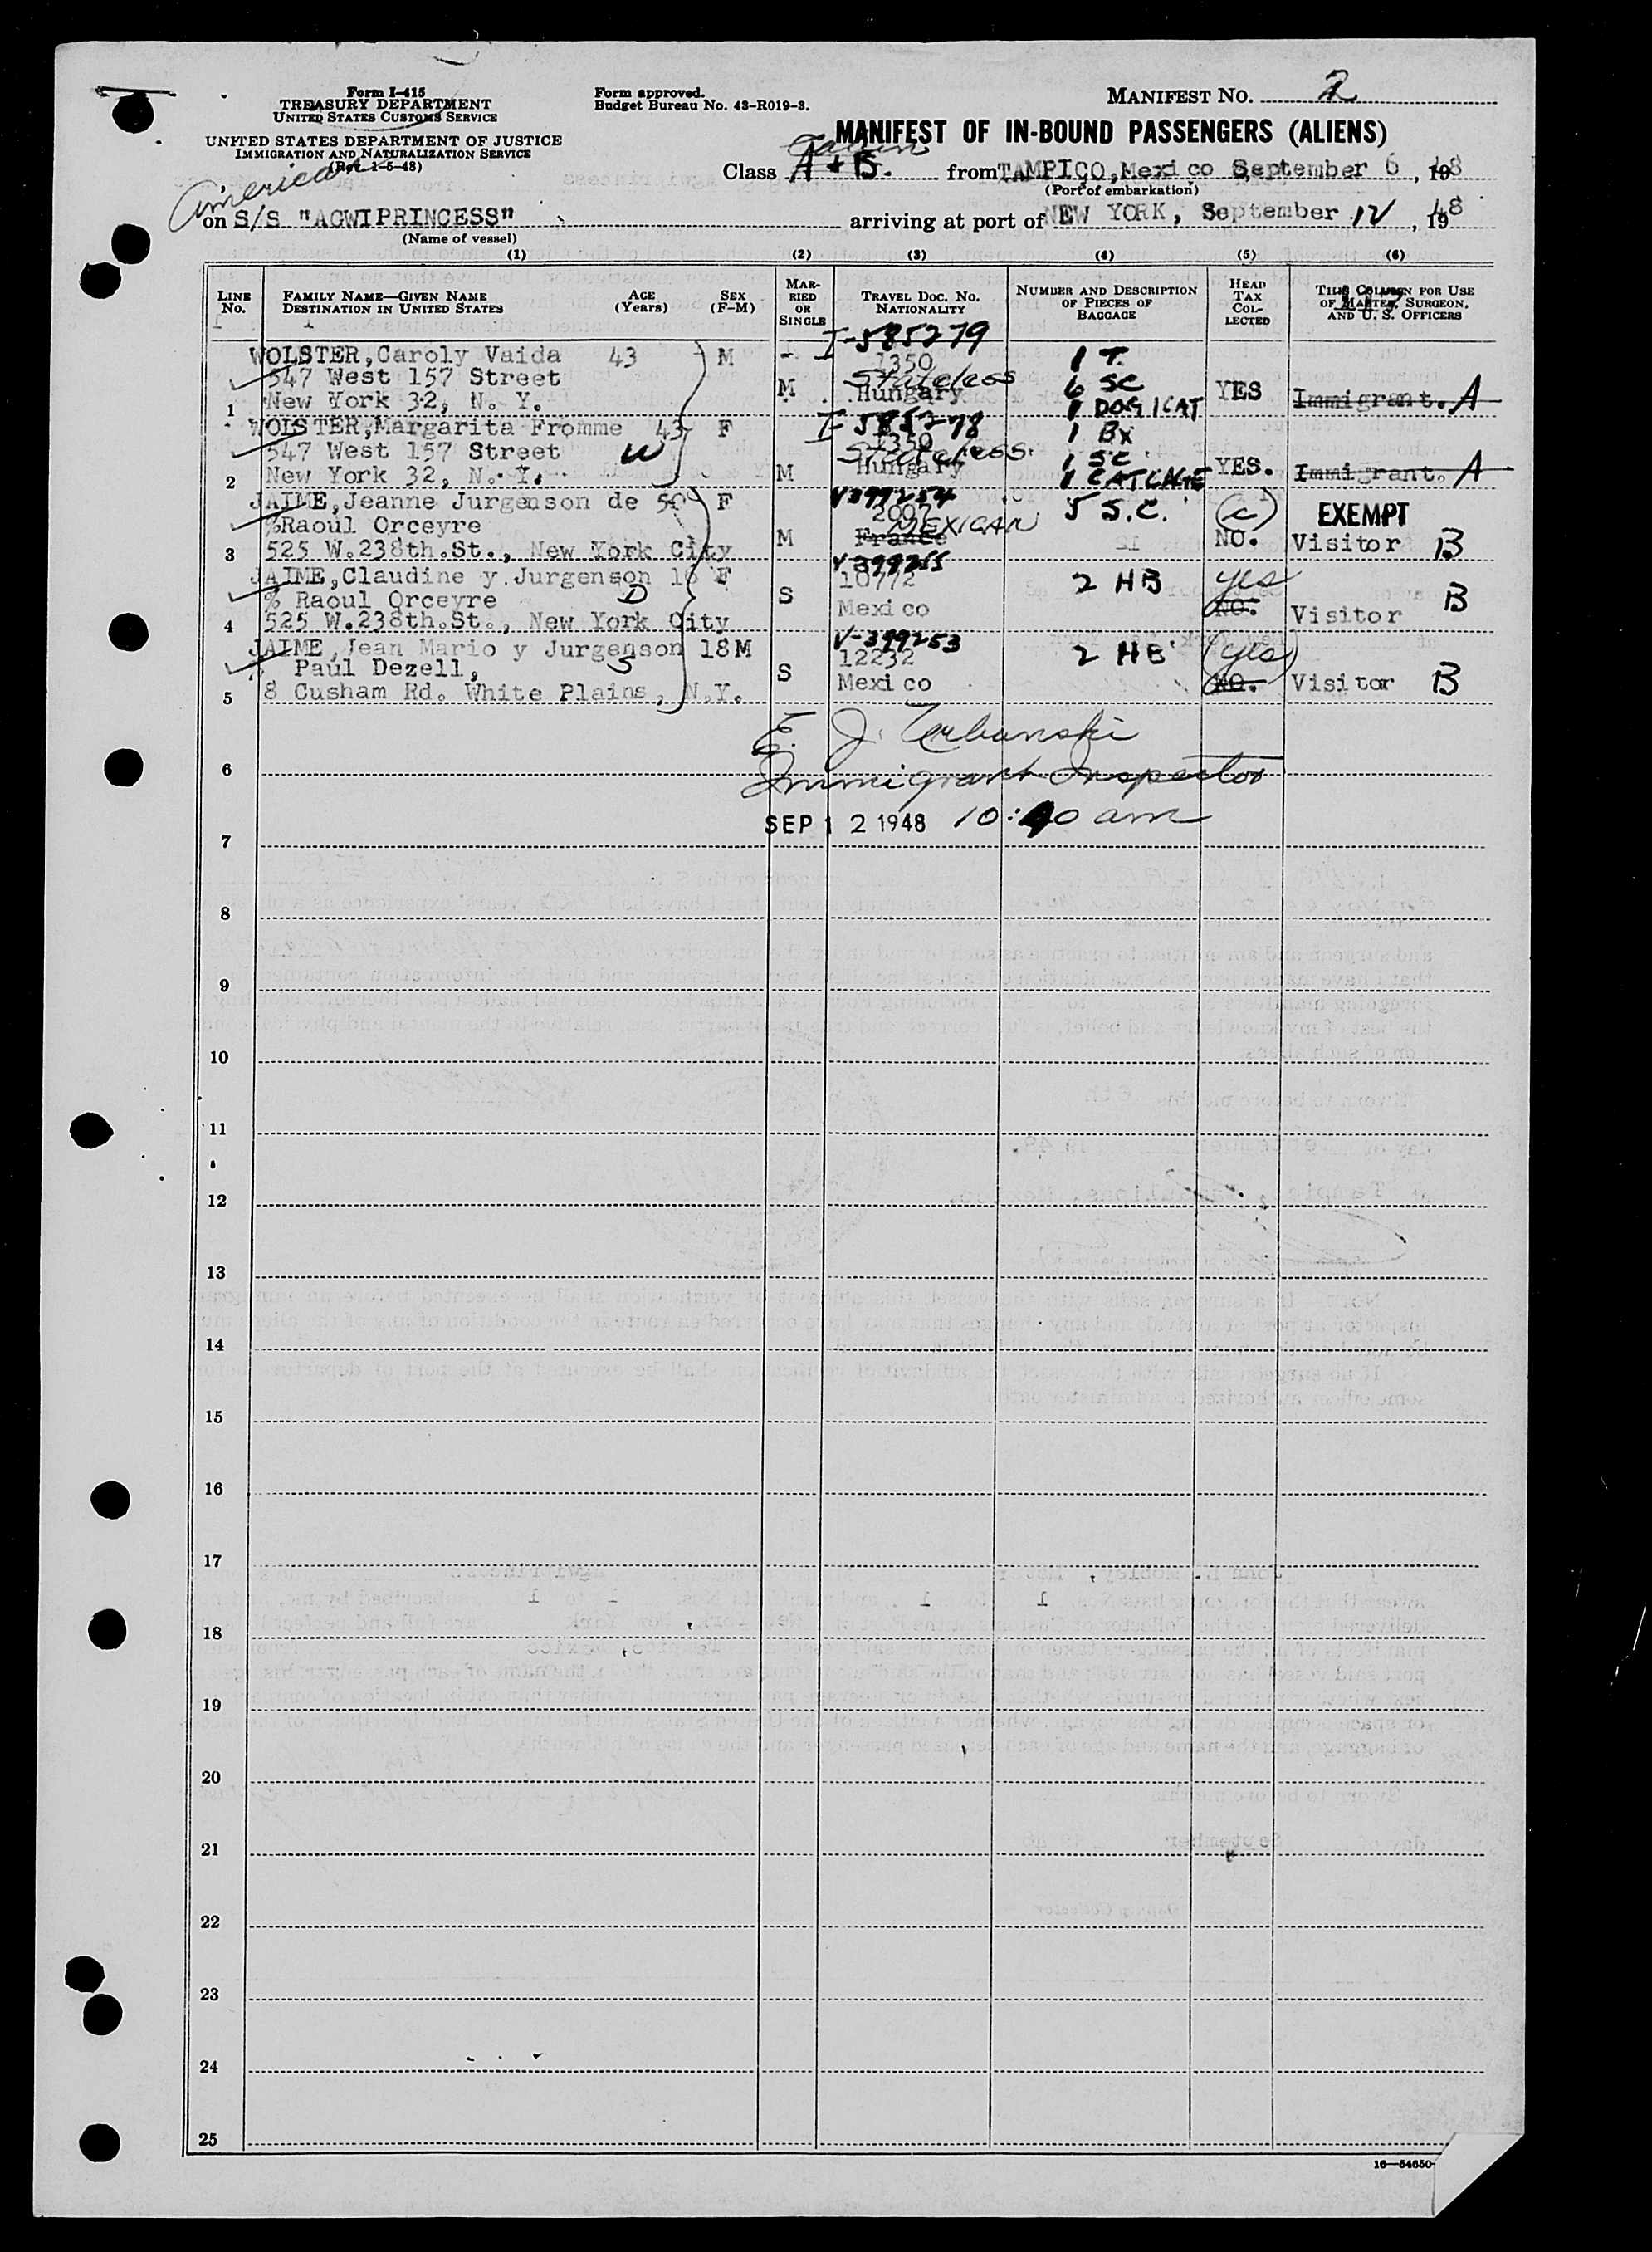 Form I-415
TREASURY DEPARTMENT
UNITED STATES CUSTOMS SERVICE
UNITED STATES DEPARTMENT OF JUSTICE
IMMIGRATION AND NATURALIZATION SERVICE
(Rev. 1-5-48)
American
Form approved.
Budget Bureau No. 43-R019-3.
MANIFEST NO. 2
MANIFEST OF IN-BOUND PASSENGERS (ALIENS)
Class A + B. from TAMPICO, Mexico September 6, 1948
(Port of embarkation)
on S/S "AGWIPRINCESS" arriving at port of NEW YORK, September 12, 1948
(Name of vessel)
(1) (2) (3) (4) (5) (6)
LINE No.
FAMILY NAME—GIVEN NAME
DESTINATION IN UNITED STATES
AGE (Years)
SEX (F-M)
MARRIED OR SINGLE
TRAVEL DOC. NO.
NATIONALITY
NUMBER AND DESCRIPTION OF PIECES OF BAGGAGE
HEAD TAX COLLECTED
THIS COLUMN FOR USE OF MASTER, SURGEON, AND U. S. OFFICERS
I-585279
WOLSTER, Caroly Vaida 43 M - 1350 1 T.
547 West 157 Street M Stateless Hungary 6 SC YES Immigrant. A
1 New York 32, N. Y. 1 DOG 1 CAT
I-585278
WOLSTER, Margarita Fromme 43 F 1350 1 Bx
547 West 157 Street W Stateless. 1 SC
2 New York 32, N. Y. M Hungary 1 CAT CAGE YES. Immigrant. A
V399254
JAIME, Jeanne Jurgenson de 50 F 2007 5 S.C. (c) EXEMPT
%Raoul Orceyre MEXICAN
3 525 W.238th.St., New York City M France NO. Visitor B
V-399255
JAIME, Claudine y Jurgenson 16 F 10772 2 HB yes
% Raoul Orceyre D S Mexico NO. Visitor B
4 525 W.238th.St., New York City
V-399253
JAIME, Jean Mario y Jurgenson 18 M 12232 2 HB (yes)
% Paul Dezell, S S Mexico NO. Visitor B
5 8 Cusham Rd. White Plains, N.Y.
E. J. Urbanski
6 Immigrant Inspector
7 SEP 12 1948 10:40 am
8
9
10
11
12
13
14
15
16
17
18
19
20
21
22
23
24
25
16—54650-